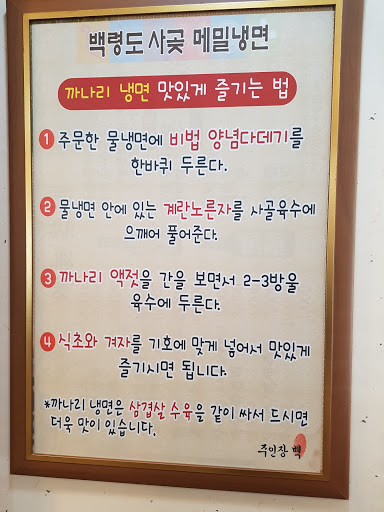 백령도 사곶 메밀냉면
까나리 냉면 맛있게 즐기는 법
1 주문한 물냉면에 비법 양념다데기를
한바퀴 두른다.
2 물냉면 안에 있는 계란노른자를 사골육수에
으깨어 풀어준다.
3 까나리 액젓을 간을 보면서 2-3방울
육수에 두른다.
4 식초와 겨자를 기호에 맞게 넣어서 맛있게
즐기시면 됩니다.
*까나리 냉면은 삼겹살 수육을 같이 싸서 드시면
더욱 맛이 있습니다.
주인장 백